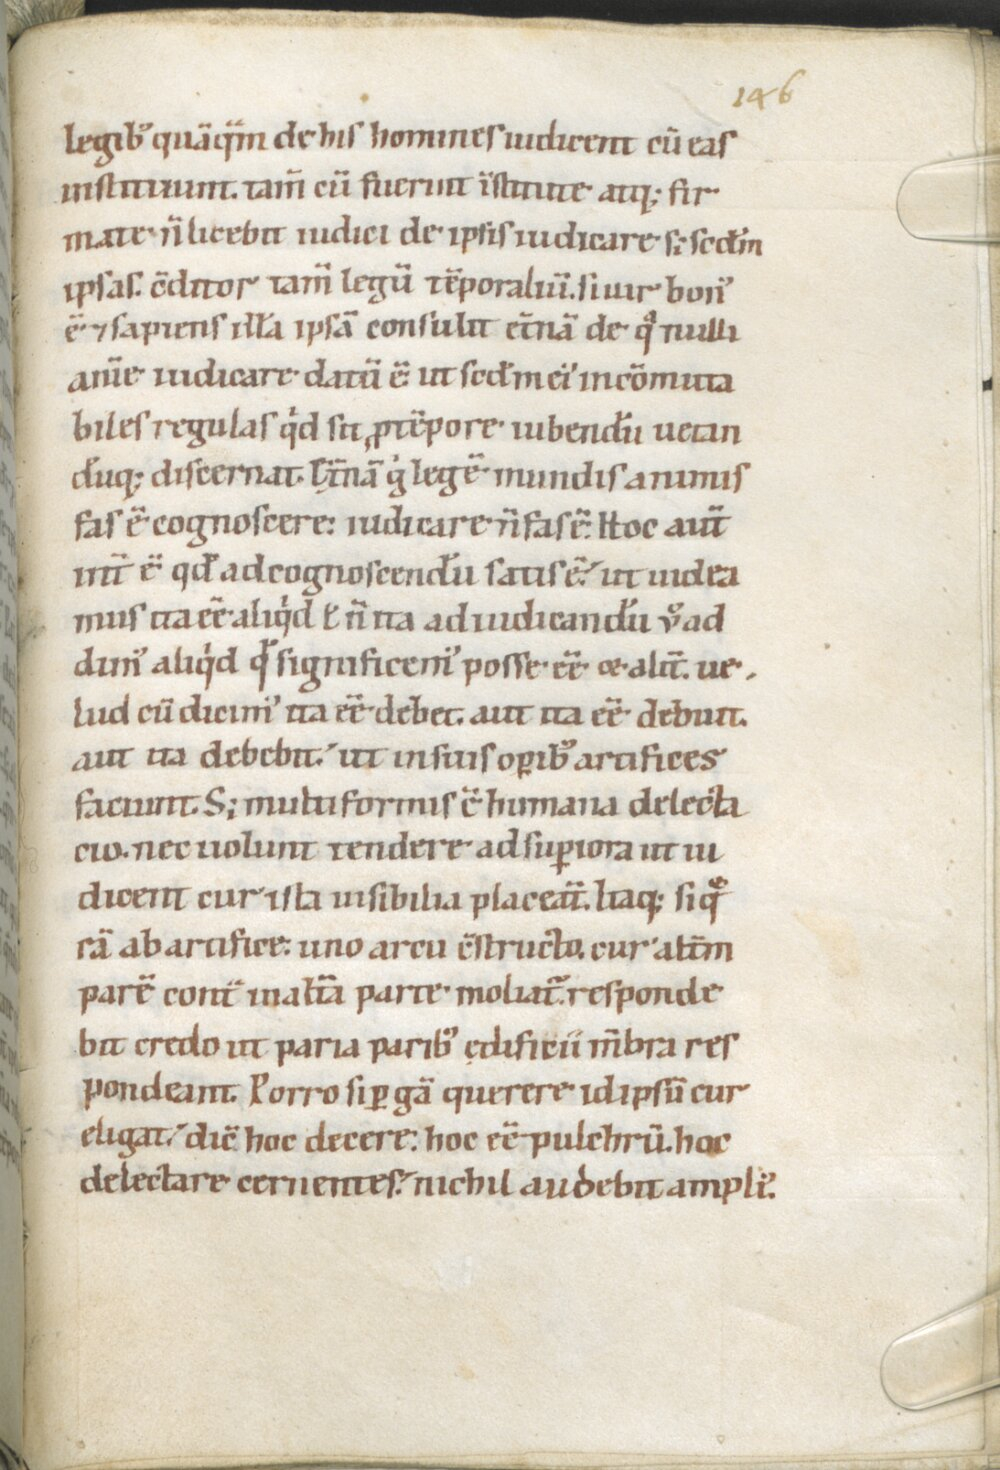 146
legib᷒ quāq̄m de his homines iudicent cū eas
instituunt. tam̄ cū fuerint īstitute atq; fir
mate n̄ licebit iudici de ipsis iudicare s; sed̄m
ipsas. c̄ditor tam̄ legū tēporaliū. si uir bon᷒
ē ⁊ sapiens illā ipsā consulit et̄nā de qᵃ nulli
anīe iudicare datū ē. ut sed̄m ei᷒ incōmuta
biles regulas qⁱd sit ꝓ tēpore iubendū uetan
dūq; discernat. Et̄nā gⁱ legē mundis animis
fas ē cognoscere: iudicare n̄ fas ē. Hoc aut̄
int̄ ē qd̄ ad cognoscendū satis ē. ut uidea
mus ita eē aliqⁱd ł n̄ ita ad iudicandū ūo ad
dim᷒ aliqⁱd qᵒ significem᷒ posse eē ⁊ alit̄. ue
lud cū dicim᷒ ita eē debet. aut ita eē debuit.
aut ita debebit. ut in suis oꝑib᷒ artifices
faciunt. S; multi formis ē humana delecta
cio. nec uolunt tendere ad suꝑiora ut iu
dicent cur ista uisibilia placeāt. Itaq; si qᵉ
rā ab artifice: uno arcu c̄structo. cur alt̄m
parē contᷓ in alt̄a parte moliat᷑. responde
bit credo ut paria parib᷒ ędificii m̄bra res
pondeant. Porro si ꝑgā querere id ipsū cur
eligat. dic̄ hoc decere: hoc eē pulchrū. hoc
delectare cernentes. nichil audebit ampli᷒.